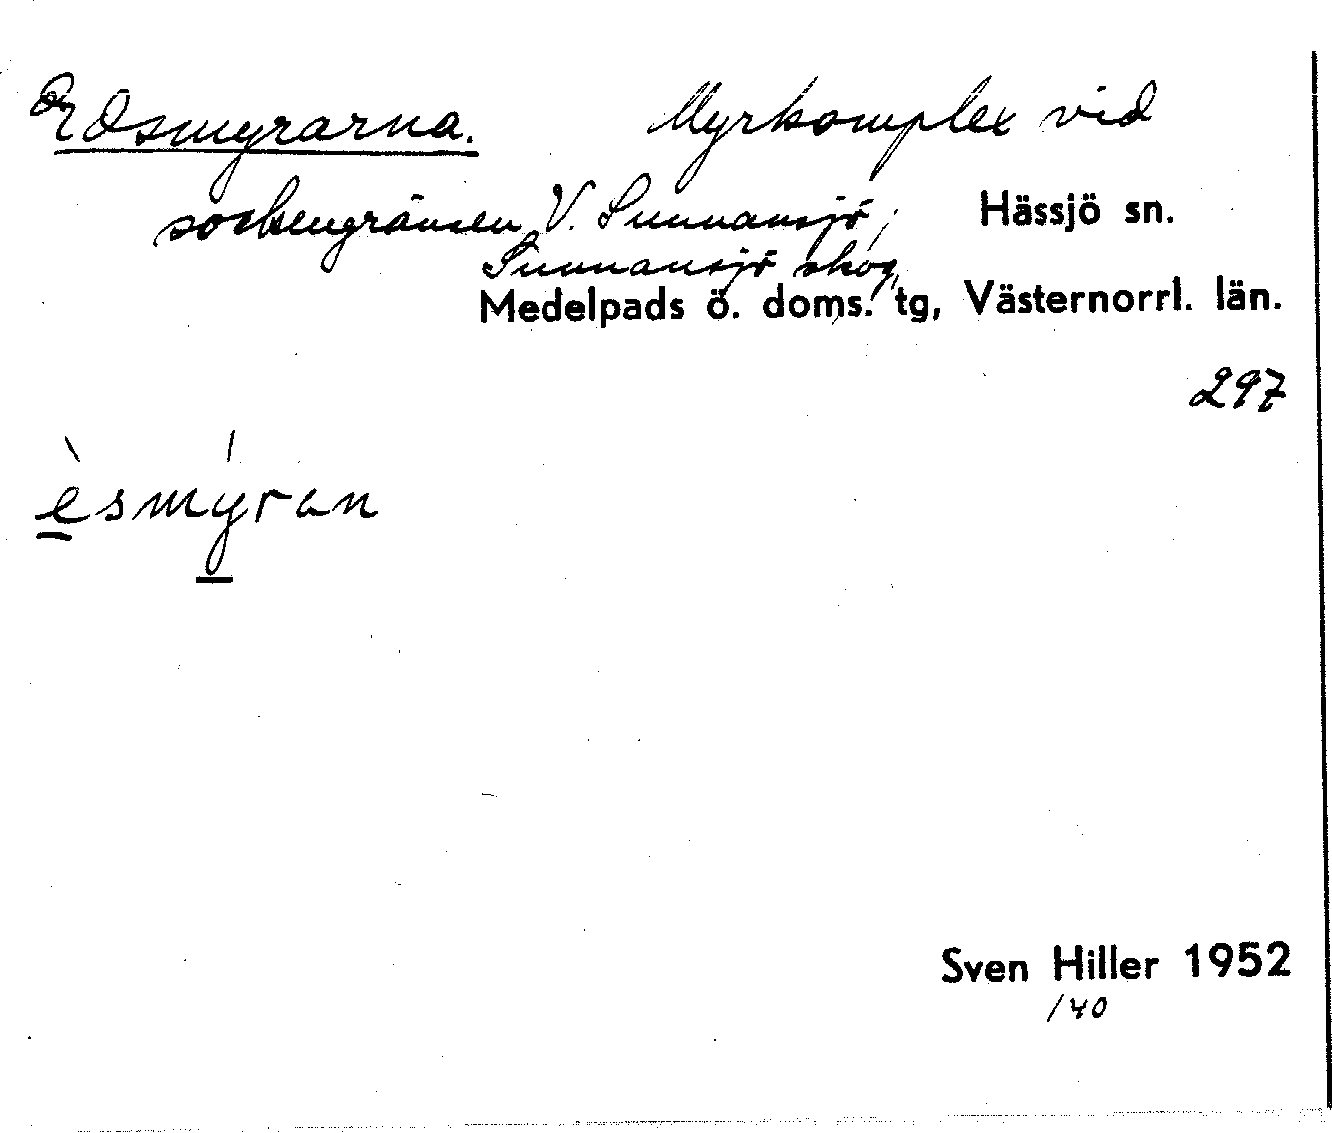 Edsmyrarna. Myrkomplex vid
sockengränsen V. Sunnansjö, Hässjö sn.
Sunnansjö skog,
Medelpads ö. doms. tg, Västernorrl. län.
297
èsmýran
Sven Hiller 1952
/40